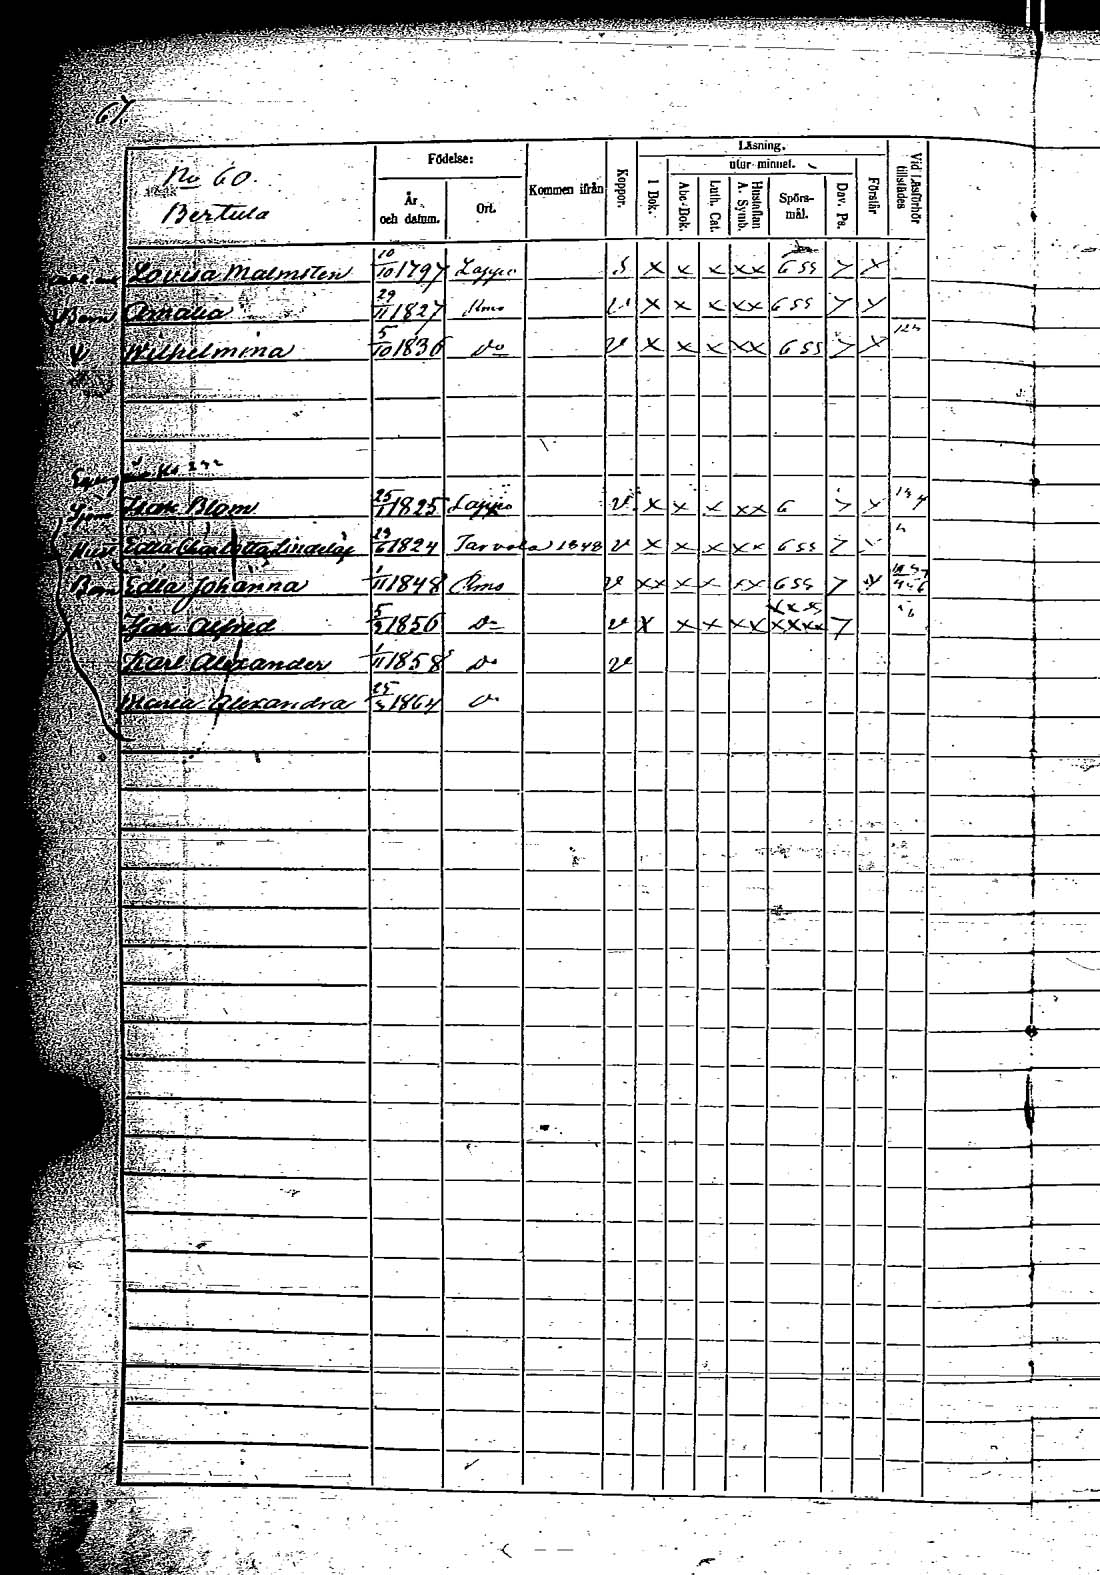 67.
No 60.
Bertula
Födelse:
År och datum.
Ort.
Kommen ifrån
Koppor.
Läsning.
I Bok.
utur minnet.
Abc-Bok.
Luth. Cat.
Hustaflan A. Symb.
Spörsmål.
Dav. Ps.
Förstår
Vid Läsförhör tillstädes
Lovisa Malmsten 10/10 1797 Lappo S x x x xx G SS > x
Barn Amalia 29/11 1827 Kmo x x x xx G SS > x
Wilhelmina 5/10 1836 do v x x x xx G SS > x
Isak Blom 25/1 1825 Lappo v x x x xx G > x
Hust Edla Charlotta Lindelöf 1824 Tarvola 1848 v x x x xx G SS >
Barn Edla Johanna 1/11 1848 Kmo v xx x x xx G SS > x
Isak Alfred 5/3 1856 do v x x x xx xxxx >
Karl Alexander 1/11 1858 do v
Maria Alexandra 25/3 1864 do